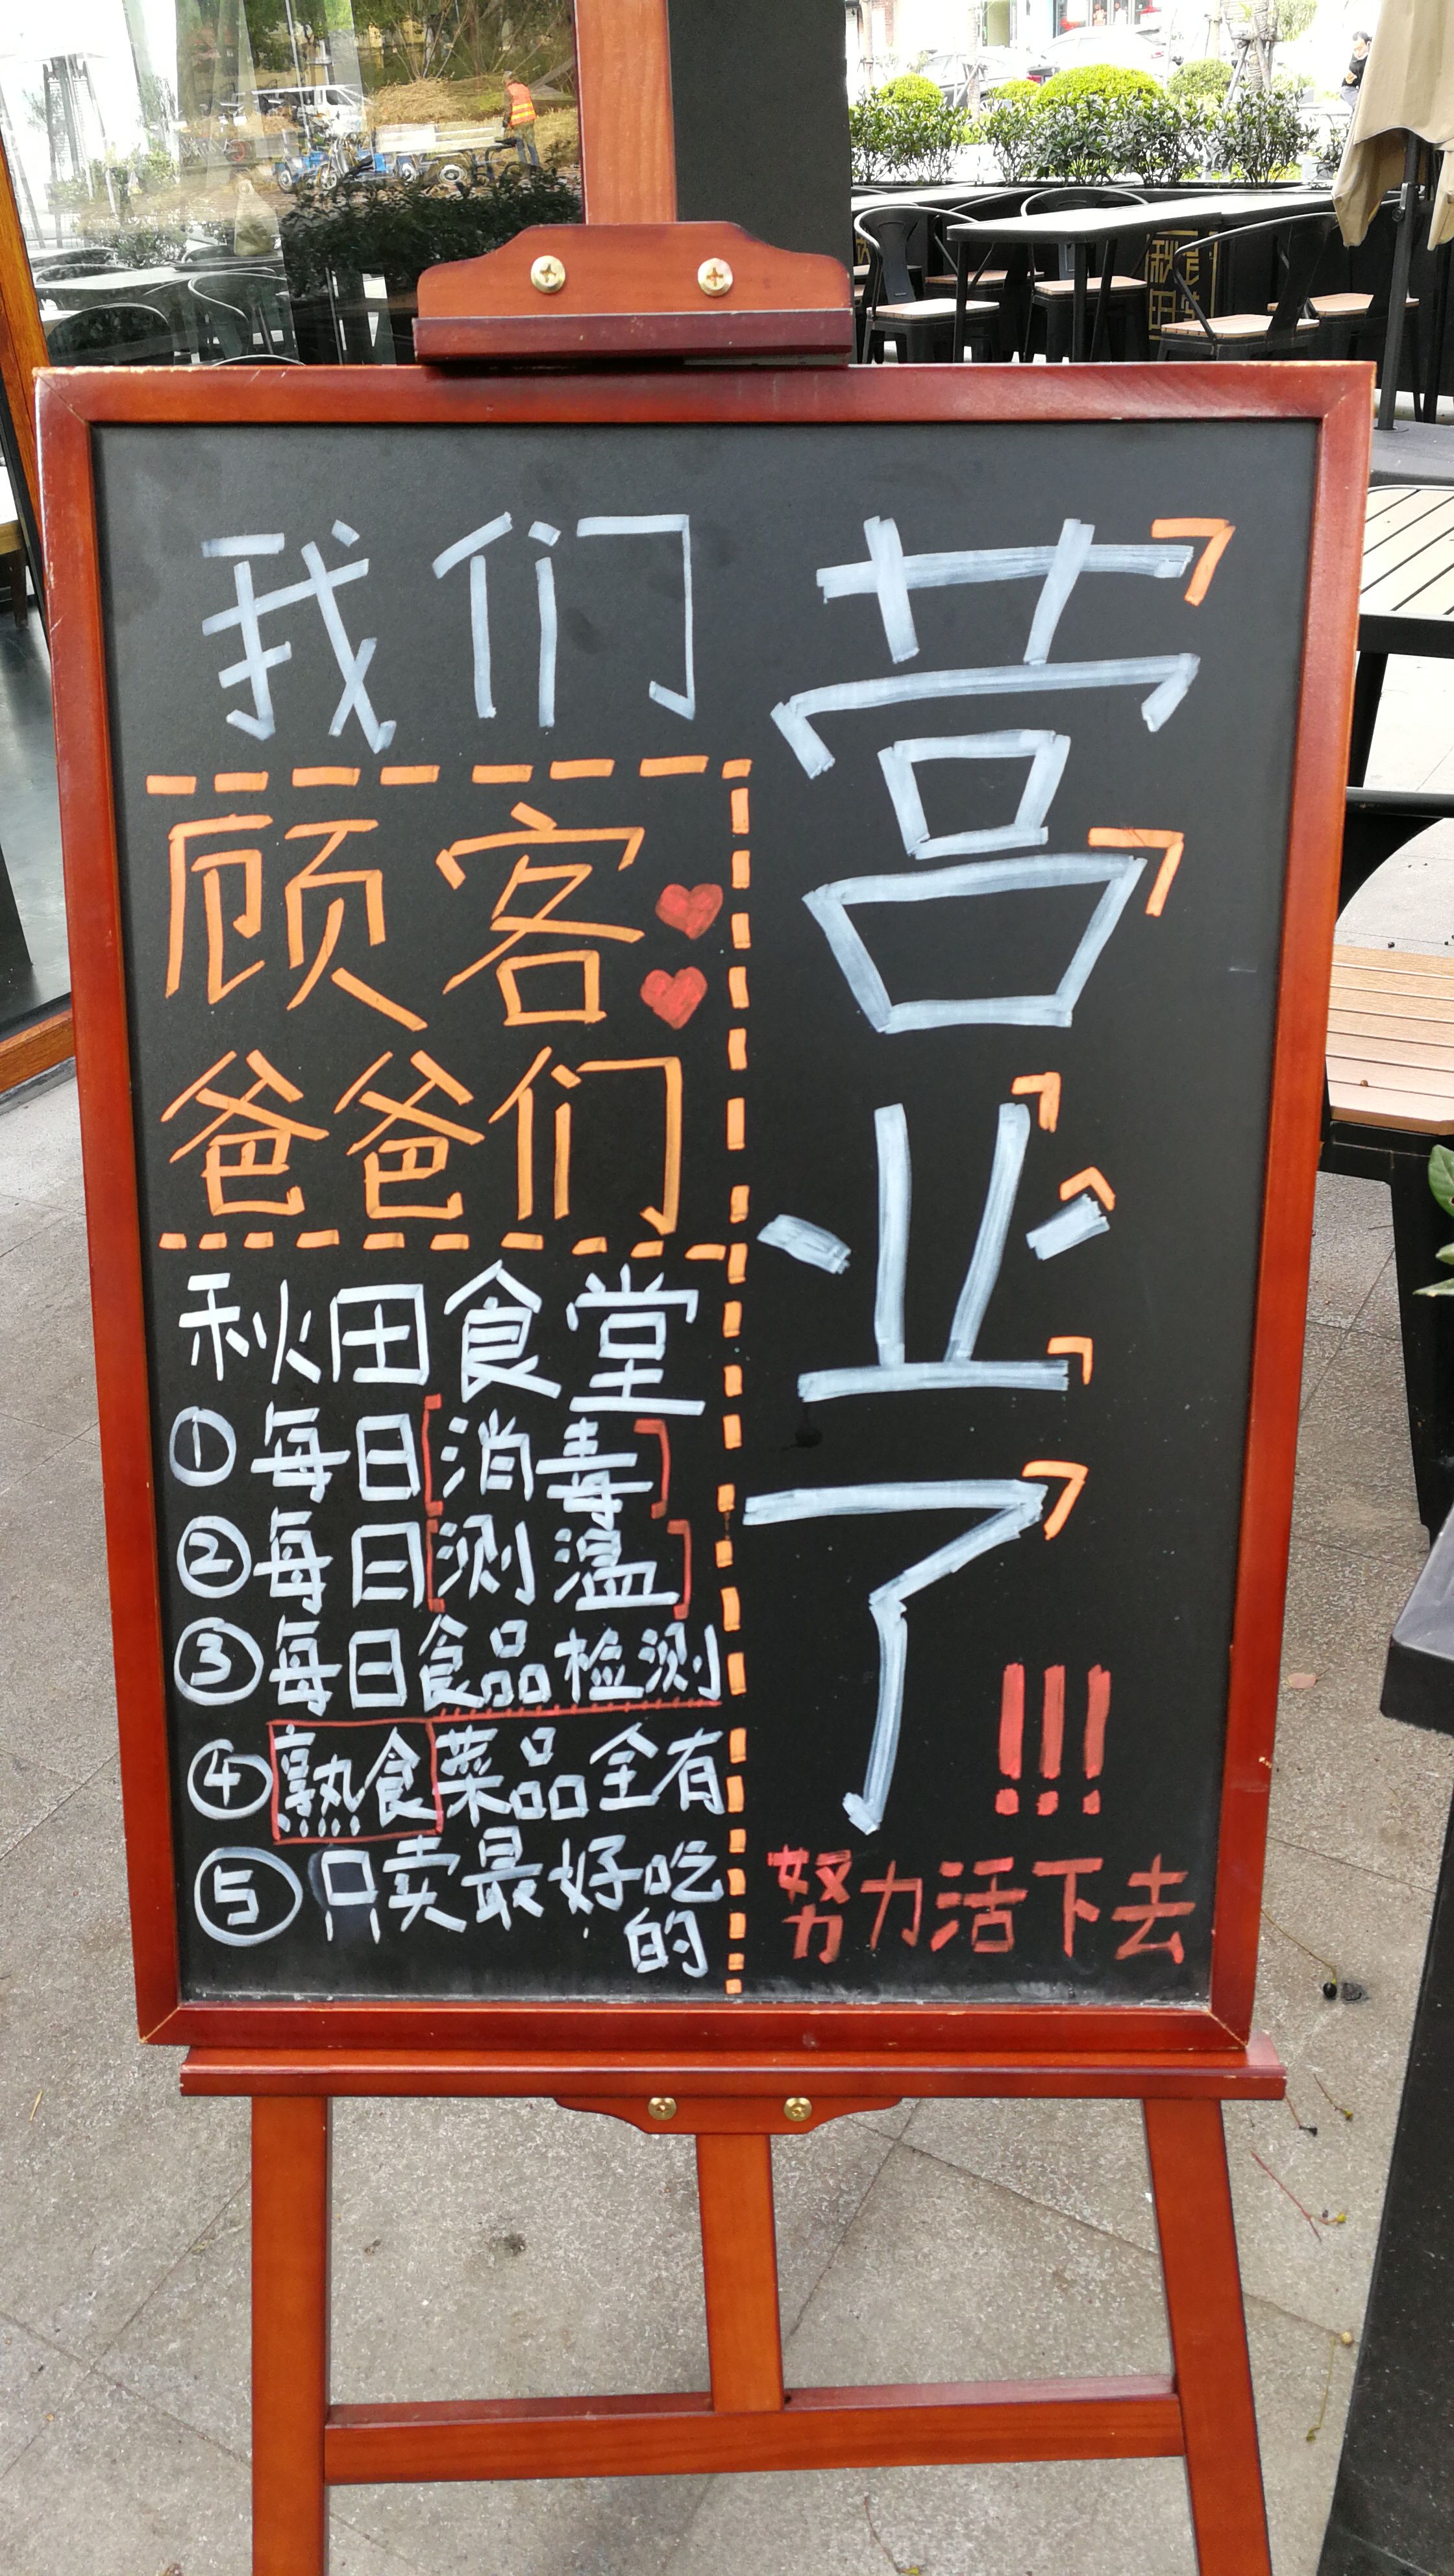 我们
营业了!!!
顾客
爸爸们
秋田食堂
①每日[消毒]
②每日[测温]
③每日食品检测
④熟食菜品全有
⑤只卖最好吃
的
努力活下去